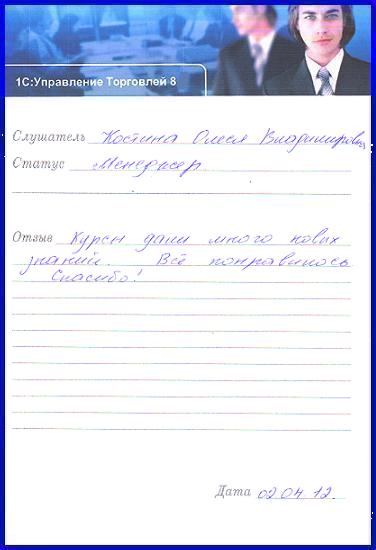 1С:Управление Торговлей 8
Слушатель Костина Олеся Владимировна
Статус Менеджер
Отзыв Курсы дали много новых
знаний. Всё понравилось
Спасибо!
Дата 02.04.12.